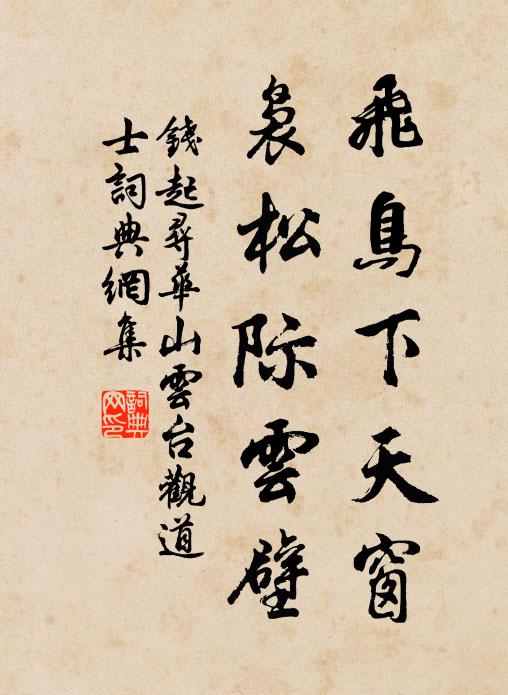 飛鳥下天窗
裊松际雲壁
錢起尋華山雲台觀道
士詞典網集
詞典网印